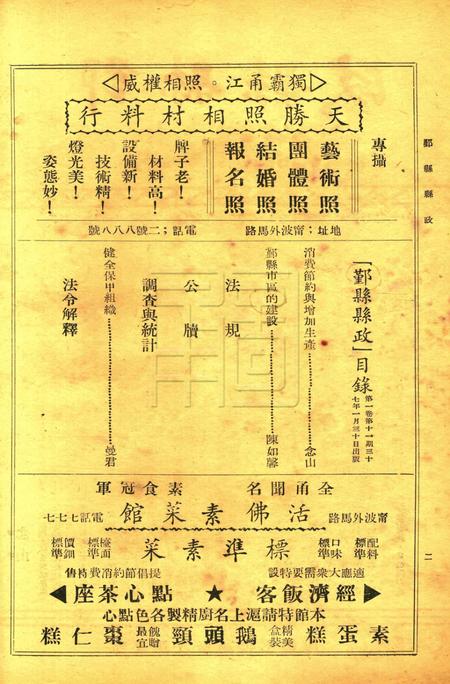 鄞縣縣政
二
◁獨霸甬江。照相權威▷
天勝照相材料行
專攝
藝術照
團體照
結婚照
報名照
牌子老！
材料高！
設備新！
技術精！
燈光美！
姿態妙！
地址；甯波外馬路
電話；二號八八八號
「鄞縣縣政」目錄
第一卷第十一期三十
七年一月三十日出版
消費節約與增加生產……念山
鄞縣市區的建設……陳如馨
法規
公牘
調查與統計
健全保甲組織……曼君
法令解釋
全甬聞名
素食冠軍
甯波外馬路
活佛素菜館
電話七七七
標準配料
標準口味
標準素菜
標準檯面
標準價鈿
適應大衆需要特設
提倡節約消費待售
▶經濟飯客
★
點心茶座◀
本館特請滬上名廚精製各色點心
素蛋糕
精美盒裝
鵝頭頸
餽贈最宜
棗仁糕